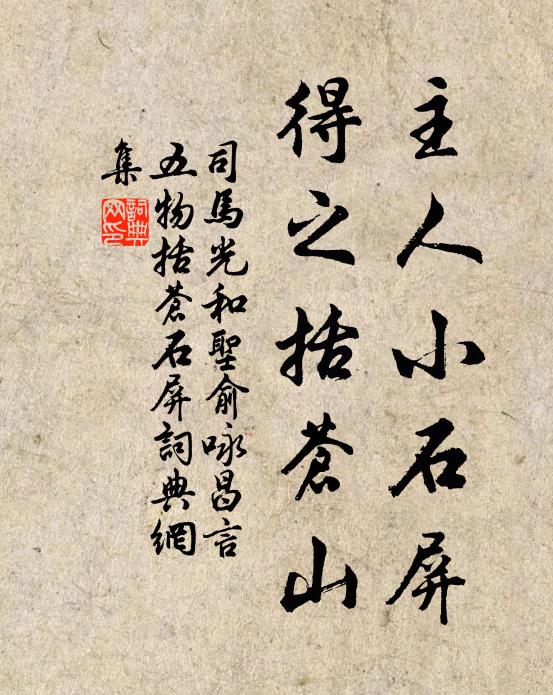 主人小石屏
得之括蒼山
司馬光和聖俞咏昌言
五物括蒼石屏詞典網
集
詞典
網印